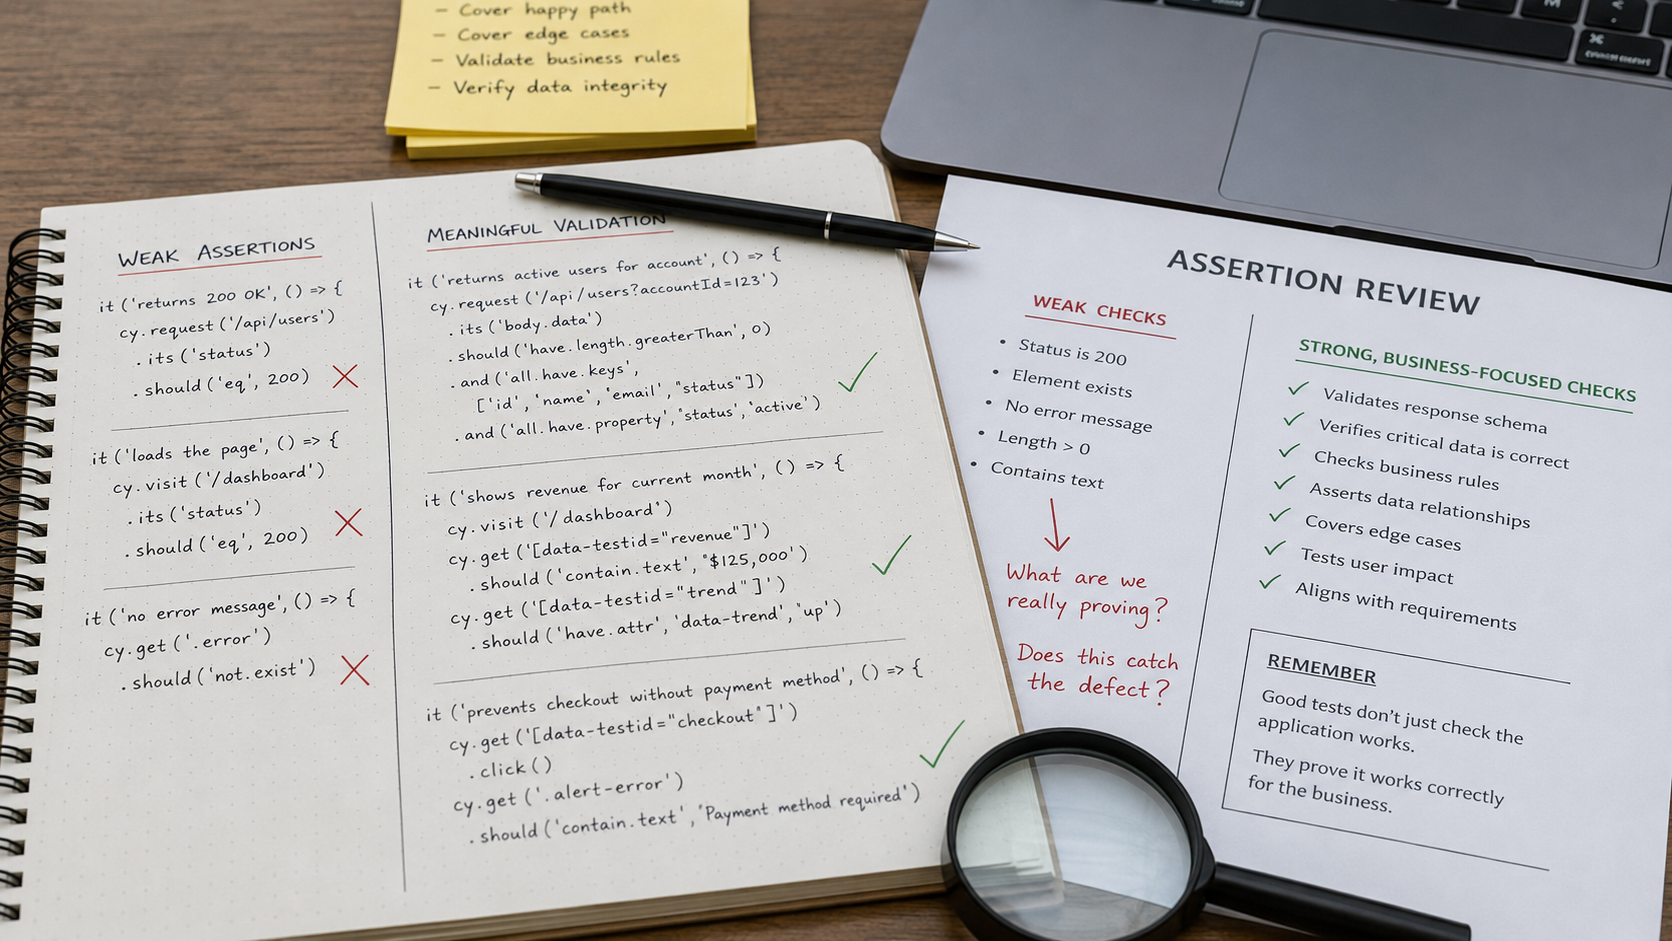 – Cover happy path
– Cover edge cases
– Validate business rules
– Verify data integrity
WEAK ASSERTIONS
it ('returns 200 OK', () => {
cy.request ('/api/users')
.its ('status')
.should ('eq', 200)
it ('loads the page', () => {
cy.visit ('/dashboard')
.its ('status')
.should ('eq', 200)
it ('no error message', () => {
cy.get ('.error')
.should ('not.exist')
MEANINGFUL VALIDATION
it ('returns active users for account', () => {
cy.request ('/api/users?accountId=123')
.its ('body.data')
.should ('have.length.greaterThan', 0)
.and ('all.have.keys',
['id', 'name', 'email', "status"])
.and ('all.have.property', "status", 'active')
it ('shows revenue for current month', () => {
cy.visit ('/dashboard')
cy.get ('[data-testid="revenue"]')
.should ('contain.text', "$125,000')
cy.get ('[data-testid="trend"]')
.should ('have.attr', 'data-trend', "up')
it ('prevents checkout without payment method', () => {
cy.get ('[data-testid="checkout"]')
.click ()
cy.get ('.alert-error')
.should ('contain.text', 'Payment method required')
ASSERTION REVIEW
WEAK CHECKS
• Status is 200
• Element exists
• No error message
• Length > 0
• Contains text
What are we
really proving?
Does this catch
the defect?
STRONG, BUSINESS-FOCUSED CHECKS
✓ Validates response schema
✓ Verifies critical data is correct
✓ Checks business rules
✓ Asserts data relationships
✓ Covers edge cases
✓ Tests user impact
✓ Aligns with requirements
REMEMBER
Good tests don't just check the
application works.
They prove it works correctly
for the business.
M
⌘